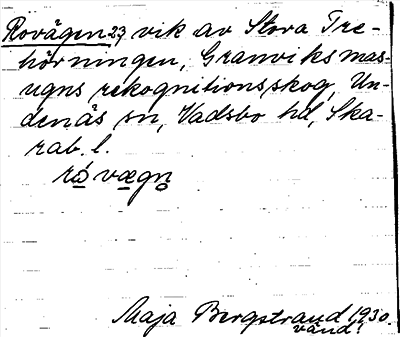 Rovägen 23, vik av Stora Tre-
hörningen, Granviks mas-
ugns rekognitionsskog, Un-
denäs sn, Vadsbo hd, Ska-
rab. l.
rå̀ vægn̥
Maja Bergstrand 1930.
vänd!